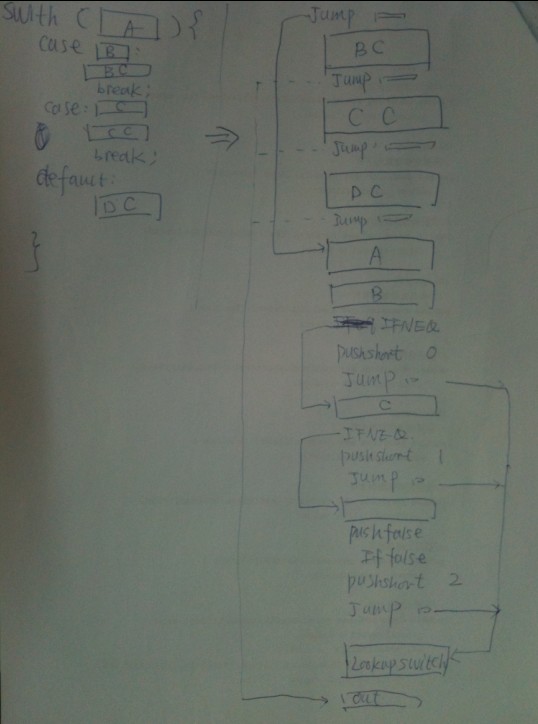 swith ( A ) {
case B :
BC
break;
case: C
CC
break;
default:
DC
}
Jump
BC
Jump
CC
Jump
DC
Jump
A
B
IFNEQ
pushshort 0
Jump
C
IFNEQ
pushshort 1
Jump
pushfalse
If false
pushshort 2
Jump
Lookupswitch
out